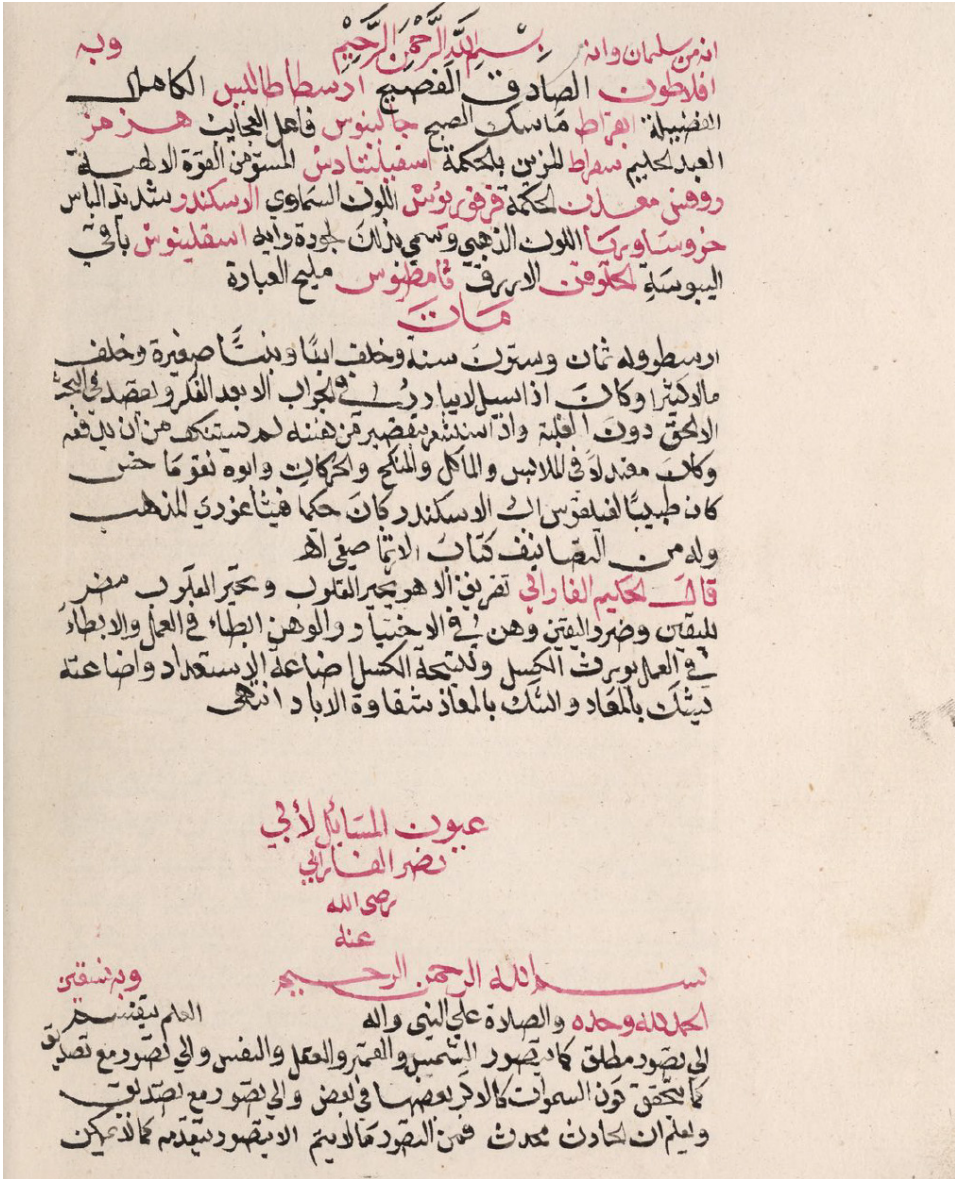 انه من سليمان وانه بِسْمِ اللَّهِ الرَّحْمَنِ الرَّحِيْمِ وبه
افلاطون الصادق الفصيح ارسطاطاليس الكامل
الفضيلة ابقراط ماسك الصبح جالينوس فاعل العجايب هرمز
العبد الحليم سقراط المزين بالحكمة المستوهن القوة الالهية
روفس معدن الحكمة فرفوريوس اللون السماوي الاسكندر شديد الباس
اللون الذهبي وسمي بذلك لجودة رايه اسقلينوس باقي
اليبوسة ثامطيوس مليح العبادة
مات
ارسطو وله ثمان وستون سنة وخلف ابنا وبنتا صغيرة وخلف
مالا كثيرا وكان اذا سيل لا يبادر في الجواب الا بعد الفكر ولا يقصد في البحث
الا الحق دون الغلبة واذا استشعر بتقصير من نفسه لم يستنكف من ان يدفعه
وكان معتدلا في الملابس والماكل والمنكح والحركات وابوه نقوماخس
كان طبيبا لفيلقوس اب الاسكندر كان حكما فيثاغوري المذهب
وله من التصانيف كتاب الارثماطيقي اه
قال الحكيم الفارابي تفريق الاهو يحير القلوب وتحير القلوب مضر
لليقين وضرر اليقين وهن في الاختيار والوهن ابطاء في العمل والابطاء
في العمل يورث الكسل ونتيجة الكسل اضاعة الاستعداد واضاعته
تشك بالمعاد والشك بالمعاد شقاوة الاباد انتهى
عيون المسايل لأبي
نصر الفارابي
رضى الله
عنه
بسم الله الرحمن الرحيم وبه نستعين
الحمد لله وحده والصلاة علي النبي واله العلم ينقسم
الي تصور مطلق كما يتصور الشمس والقمر والعقل والنفس والي تصور مع تصديق
كما يتحقق كون السموات كالاكر بعضها في بعض والي تصور مع تصديق
ويعلم ان الحادث محدث فمن التصور ما لا يتم الا بتصور يتقدمه كما لا يمكن